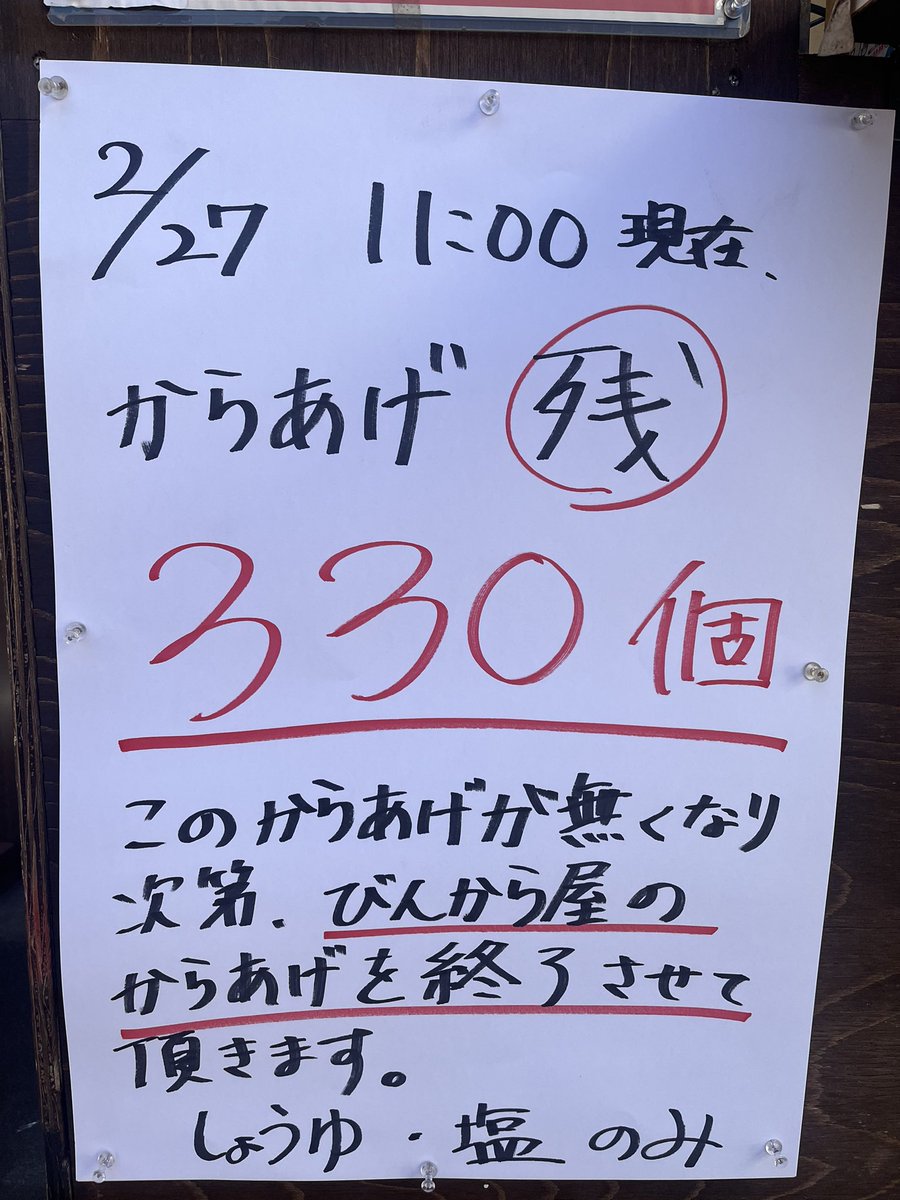 2/27 11:00 現在、
からあげ 残
330個
このからあげが無くなり
次第、びんから屋の
からあげを終了させて
頂きます。
しょうゆ・塩のみ